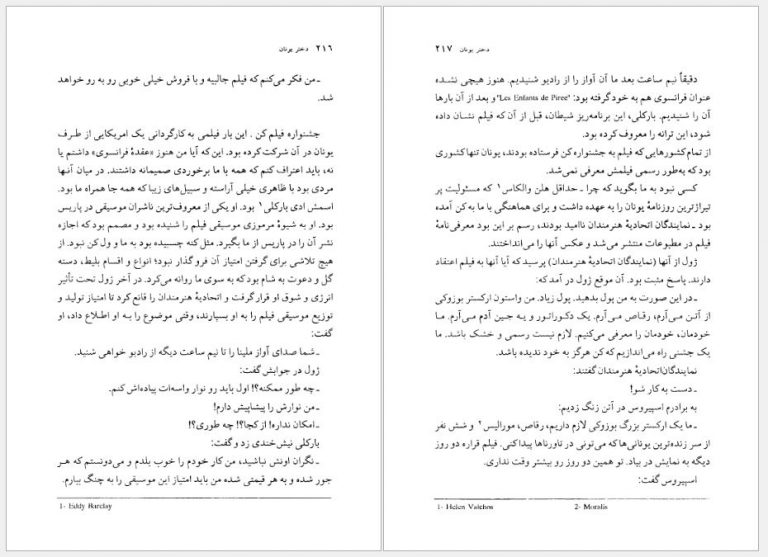 ۲۱۶ دختر یونان
ـ من فکر می‌کنم که فیلم جالبیه و با فروش خیلی خوبی رو به رو خواهد
شد.
جشنواره فیلم کن . این بار فیلمی به کارگردانی یک امریکایی از طرف
یونان در آن شرکت کرده بود. این که آیا من هنوز «عقدهٔ فرانسوی» داشتم یا
نه، باید اعتراف کنم که همه با ما برخوردی صمیمانه داشتند. در میان آنها
مردی بود با ظاهری خیلی آراسته و سبیل‌های زیبا که همه جا همراه ما بود.
اسمش ادی بارکلی۱ بود. او یکی از معروف‌ترین ناشران موسیقی در پاریس
بود. او به شیوهٔ مرموزی موسیقی فیلم را شنیده بود و مصمم بود که اجازه
نشر آن را در پاریس از ما بگیرد. مثل کنه چسبیده بود به ما و ول کن نبود. از
هیچ تلاشی برای گرفتن امتیاز آن فرو گذار نبود؛ انواع و اقسام بلیط، دسته
گل و دعوت به شام بود که به سوی ما روانه می‌کرد. در آخر ژول تحت تأثیر
انرژی و شوق او قرار گرفت و اتحادیهٔ هنرمندان را قانع کرد تا امتیاز تولید و
توزیع موسیقی فیلم را به او بسپارند، وقتی موضوع را به او اطلاع داد، او
گفت:
ـ شما صدای آواز ملینا را تا نیم ساعت دیگه از رادیو خواهی شنید.
ژول در جوابش گفت:
ـ چه طور ممکنه؟! اول باید رو نوار واسه‌ات پیاده‌اش کنم.
ـ من نوارش را پیشاپیش دارم!
ـ امکان نداره! از کجا؟! چه طوری؟!
بارکلی نیش‌خندی زد و گفت:
ـ نگران اونش نباشید، من کار خودم را خوب بلدم و می‌دونستم که هر
جور شده و به هر قیمتی شده من باید امتیاز این موسیقی را به چنگ بیارم.
1- Eddy Barclay
دختر یونان ۲۱۷
دقیقاً نیم ساعت بعد ما آن آواز را از رادیو شنیدیم. هنوز هیچی نشده
عنوان فرانسوی هم به خود گرفته بود: "Les Enfants de Piree" و بعد از آن بارها
آن را شنیدیم. بارکلی، این برنامه‌ریز شیطان، قبل از آن که فیلم نشان داده
شود، این ترانه را معروف کرده بود.
از تمام کشورهایی که فیلم به جشنواره کن فرستاده بودند، یونان تنها کشوری
بود که به‌طور رسمی فیلمش معرفی نمی‌شد.
کسی نبود به ما بگوید که چرا ـ حداقل هلن والکاس۱ که مسئولیت پر
تیراژترین روزنامهٔ یونان را به عهده داشت و برای هماهنگی با ما به کن آمده
بود ـ نمایندگان اتحادیهٔ هنرمندان ناامید بودند، رسم بر این بود معرفی‌نامهٔ
فیلم در مطبوعات منتشر می‌شد و عکس آنها را می‌انداختند.
ژول از آنها (نمایندگان اتحادیهٔ هنرمندان) پرسید که آیا آنها به فیلم اعتقاد
دارند. پاسخ مثبت بود. آن موقع ژول در آمد که:
ـ در این صورت به من پول بدهید. پول زیاد. من واستون ارکستر بوزوکی
از آتن می‌آرم، رقاص می‌آرم. یک دکوراتور و یه جین آدم می‌آرم. ما
خودمان، خودمان را معرفی می‌کنیم. لازم نیست رسمی و خشک باشد. ما
یک جشنی راه می‌اندازیم که کن هرگز به خود ندیده باشد.
نمایندگان اتحادیهٔ هنرمندان گفتند:
ـ دست به کار شو!
به برادرم اسپیروس در آتن زنگ زدیم:
ـ ما یک ارکستر بزرگ بوزوکی لازم داریم، رقاص، مورالیس۲ و شش نفر
از سر زنده‌ترین یونانی‌ها که می‌تونی در تاورناها پیدا کنی. فیلم قراره دو روز
دیگه به نمایش در بیاد. تو همین دو روز رو بیشتر وقت نداری.
اسپیروس گفت:
1- Helen Valchos 2- Moralis